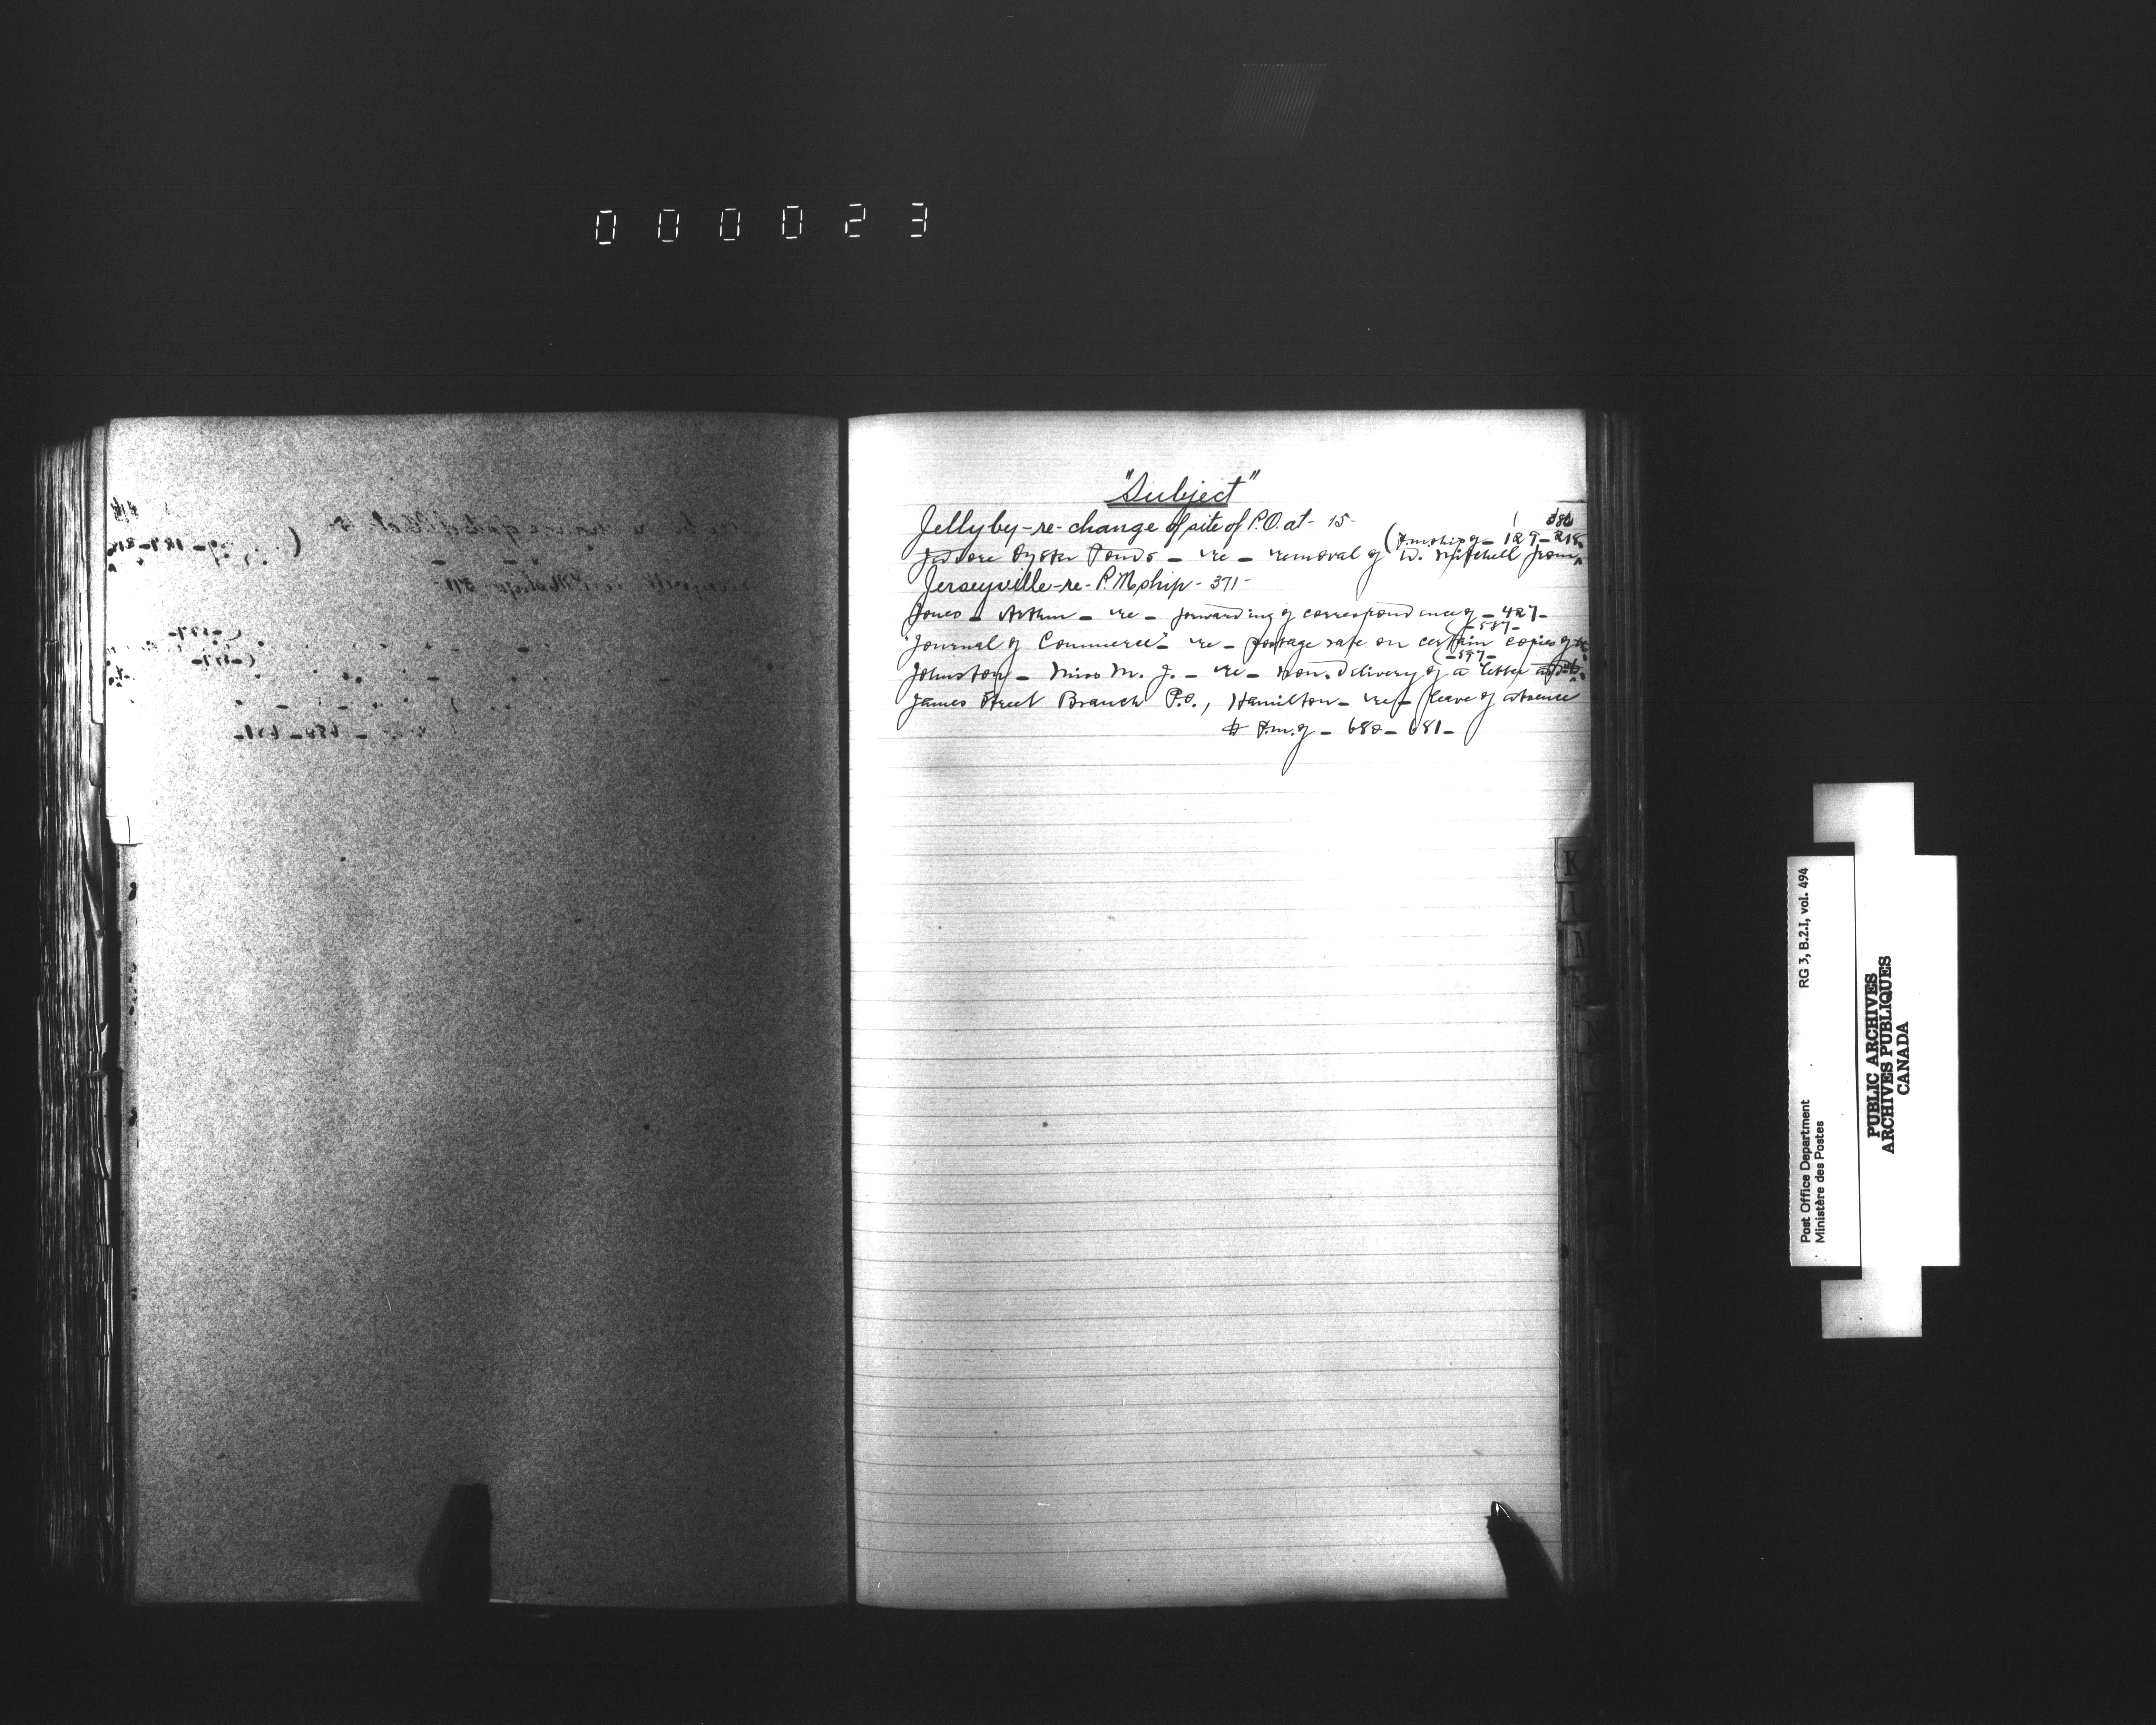 000023
"Subject"
Jellyby-re-change of site of P.O. at- 15-
386
(P.mship of - 129-218
Jeddore Oyster Ponds - re - removal of W. Mitchell from
Jerseyville-re-P.Mship-371-
Jones - Arthur - re - forwarding of correspondence of - 427-
(-587-
"Journal of Commerce" - re - postage rate on certain copies of
(-597-
Johnston - Miss M. J. - re - non-delivery of a letter
James Street Branch P.O., Hamilton - re - leave of absence
P.m. of - 680 - 681-
K
L
M
N
O
RG 3, B.2.I, vol. 494
Post Office Department
Ministère des Postes
PUBLIC ARCHIVES
ARCHIVES PUBLIQUES
CANADA